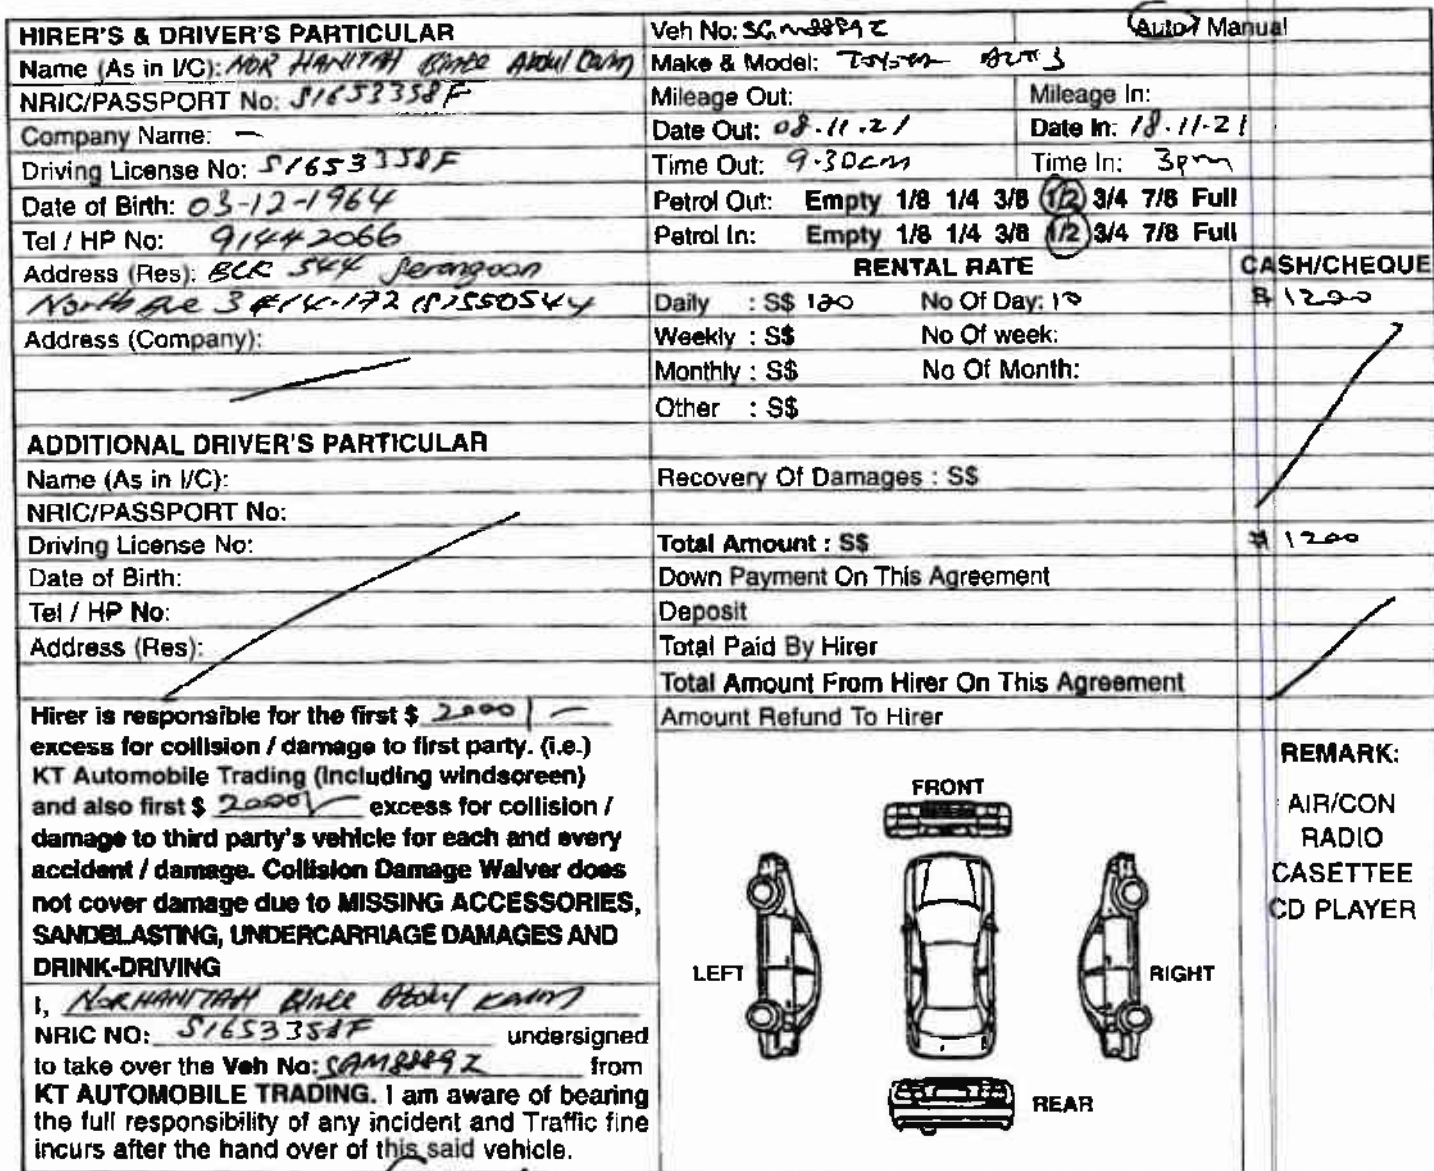 HIRER'S & DRIVER'S PARTICULAR
Name (As in I/C): NOR HANITAH Binte Abdul Karim
NRIC/PASSPORT No: S1653358F
Company Name: —
Driving License No: S1653358F
Date of Birth: 03-12-1964
Tel / HP No: 91442066
Address (Res): BLK 544 Serangoon
North Ave 3 #14-172 (S)550544
Address (Company):
ADDITIONAL DRIVER'S PARTICULAR
Name (As in I/C):
NRIC/PASSPORT No:
Driving License No:
Date of Birth:
Tel / HP No:
Address (Res):
Hirer is responsible for the first $ 2000/-
excess for collision / damage to first party. (i.e.)
KT Automobile Trading (Including windscreen)
and also first $ 2000/- excess for collision /
damage to third party's vehicle for each and every
accident / damage. Collision Damage Waiver does
not cover damage due to MISSING ACCESSORIES,
SANDBLASTING, UNDERCARRIAGE DAMAGES AND
DRINK-DRIVING
I, NORHANITAH Binte Abdul Karim
NRIC NO: S1653358F undersigned
to take over the Veh No: from
KT AUTOMOBILE TRADING. I am aware of bearing
the full responsibility of any incident and Traffic fine
incurs after the hand over of this said vehicle.
Veh No: Auto / Manual
Make & Model: Toyota
Mileage Out: Mileage In:
Date Out: 08.11.21 Date In: 18.11.21
Time Out: 9.30am Time In: 3pm
Petrol Out: Empty 1/8 1/4 3/8 1/2 3/4 7/8 Full
Petrol In: Empty 1/8 1/4 3/8 1/2 3/4 7/8 Full
RENTAL RATE CASH/CHEQUE
Daily : S$ 120 No Of Day: 10 $ 1200
Weekly : S$ No Of week:
Monthly : S$ No Of Month:
Other : S$
Recovery Of Damages : S$
Total Amount : S$ $ 1200
Down Payment On This Agreement
Deposit
Total Paid By Hirer
Total Amount From Hirer On This Agreement
Amount Refund To Hirer
FRONT
LEFT
RIGHT
REAR
REMARK:
AIR/CON
RADIO
CASETTEE
CD PLAYER